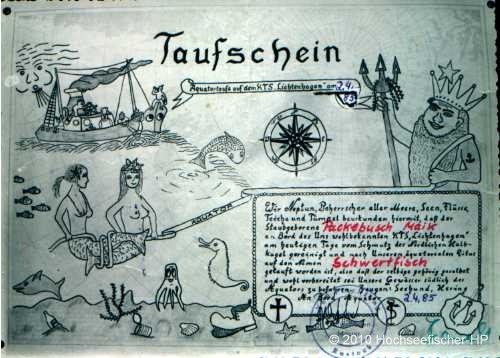 Taufschein
Äquatortaufe auf dem KTS „Lichtenhagen" am 2.4.
83
ÄQUATOR
Wir Neptun, Beherrscher aller Meere, Seen, Flüsse,
Teiche und Tümpel beurkunden hiermit, daß der
Staubgeborene Packebusch Maik
an Bord des Uns wohlbekannten KTS „Lichtenhagen"
am heutigen Tage vom Schmutz der Nördlichen Halb-
kugel gereinigt und nach Unserem äquatorealen Ritus
auf den Namen Schwertfisch
getauft worden ist, also daß derselbige gehörig gesalbet
und wohl vorbereitet sei Unsere Gewässer südlich des
Äquators zu befahren. Zeugen: Seehund, Hering
An Bord, Äquator 2.4.85
© 2010 Hochseefischer-HP